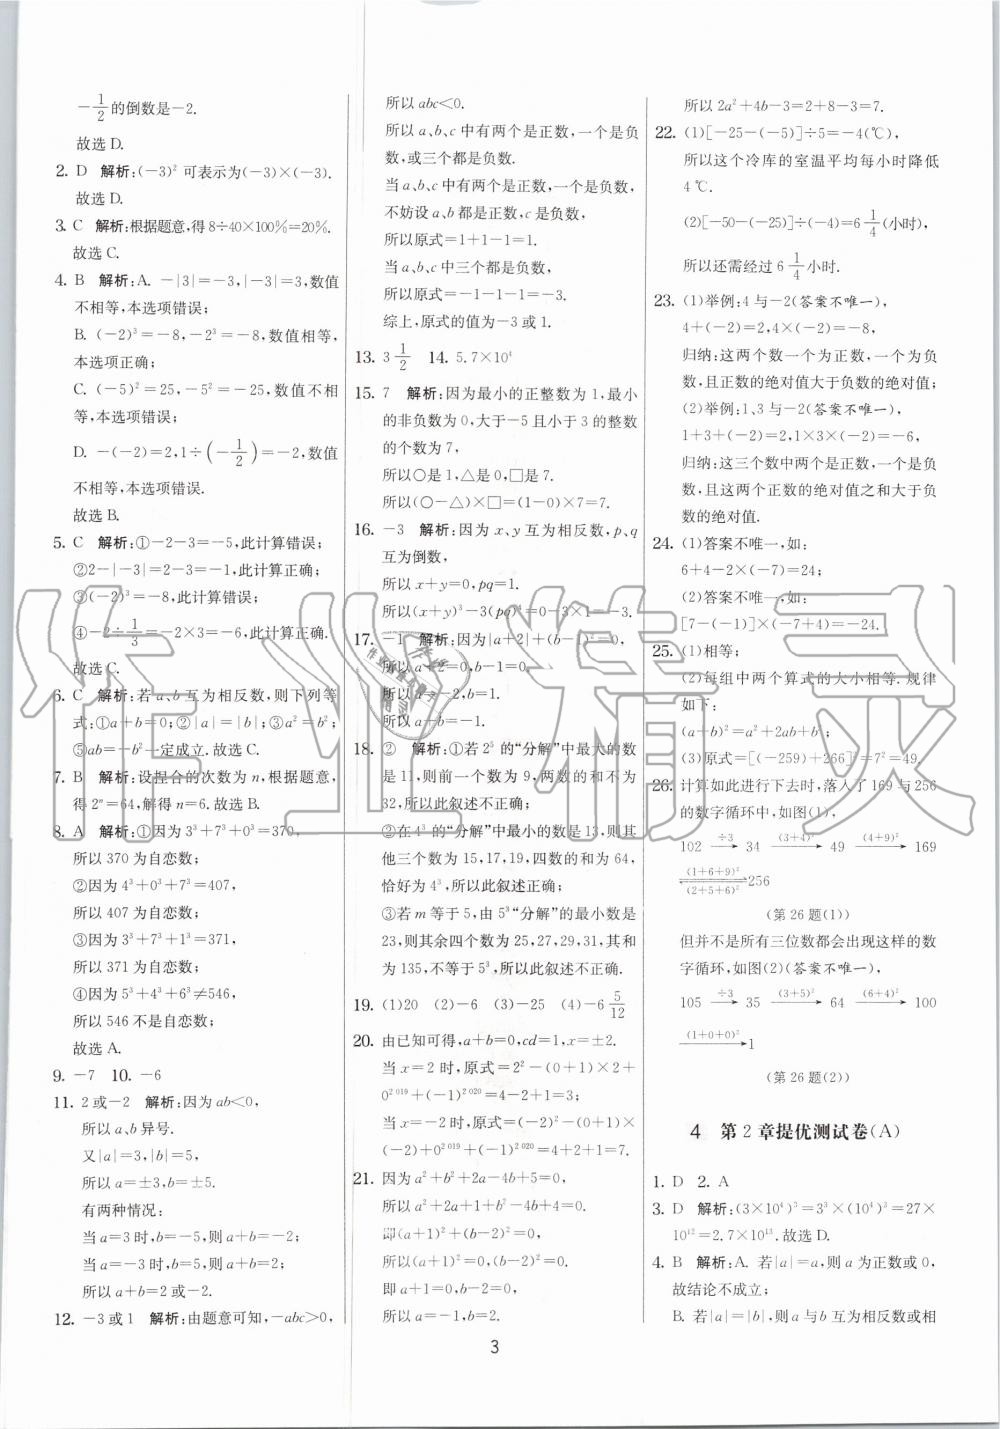 -1/2的倒数是-2.
故选D.
2. D 解析:(-3)²可表示为(-3)×(-3).
故选D.
3. C 解析:根据题意,得8÷40×100%=20%.
故选C.
4. B 解析:A. -|3|=-3,|-3|=3,数值
不相等,本选项错误;
B. (-2)³=-8,-2³=-8,数值相等,
本选项正确;
C. (-5)²=25,-5²=-25,数值不相
等,本选项错误;
D. -(-2)=2,1÷(-1/2)=-2,数值
不相等,本选项错误.
故选B.
5. C 解析:①-2-3=-5,此计算错误;
②2-|-3|=2-3=-1,此计算正确;
③(-2)³=-8,此计算错误;
④-2÷1/3=-2×3=-6,此计算正确.
故选C.
6. C 解析:若a、b互为相反数,则下列等
式:①a+b=0;②|a|=|b|;③a²=b²;
⑤ab=-b²一定成立.故选C.
7. B 解析:设捏合的次数为n,根据题意,
得2ⁿ=64,解得n=6.故选B.
8. A 解析:①因为3³+7³+0³=370,
所以370为自恋数;
②因为4³+0³+7³=407,
所以407为自恋数;
③因为3³+7³+1³=371,
所以371为自恋数;
④因为5³+4³+6³≠546,
所以546不是自恋数;
故选A.
9. -7 10. -6
11. 2或-2 解析:因为ab<0,
所以a、b异号.
又|a|=3,|b|=5,
所以a=±3,b=±5.
有两种情况:
当a=3时,b=-5,则a+b=-2;
当a=-3时,b=5,则a+b=2;
所以a+b=2或-2.
12. -3或1 解析:由题意可知,-abc>0,
所以abc<0.
所以a、b、c中有两个是正数,一个是负
数,或三个都是负数.
当a、b、c中有两个是正数,一个是负数,
不妨设a、b都是正数,c是负数,
所以原式=1+1-1=1.
当a、b、c中三个都是负数,
所以原式=-1-1-1=-3.
综上,原式的值为-3或1.
13. 3 1/2 14. 5.7×10⁴
15. 7 解析:因为最小的正整数为1,最小
的非负数为0,大于-5且小于3的整数
的个数为7,
所以○是1,△是0,□是7.
所以(○-△)×□=(1-0)×7=7.
16. -3 解析:因为x、y互为相反数,p、q
互为倒数,
所以x+y=0,pq=1.
所以(x+y)³-3(pq)⁴=0-3×1=-3.
17. -1 解析:因为|a+2|+(b-1)²=0,
所以a+2=0,b-1=0.
所以a=-2,b=1.
所以a+b=-1.
18. ② 解析:①若2⁵的“分解”中最大的数
是17,则前一个数为9,两数的和不为
32,所以此叙述不正确;
②在4³的“分解”中最小的数是13,则其
他三个数为15,17,19,四数的和为64,
恰好为4³,所以此叙述正确;
③若m等于5,由5³“分解”的最小数是
23,则其余四个数为25,27,29,31,其和
为135,不等于5³,所以此叙述不正确.
19. (1)20 (2)-6 (3)-25 (4)-6 5/12
20. 由已知可得,a+b=0,cd=1,x=±2.
当x=2时,原式=2²-(0+1)×2+
0²⁰¹⁹+(-1)²⁰²⁰=4-2+1=3;
当x=-2时,原式=(-2)²-(0+1)×
(-2)+0²⁰¹⁹+(-1)²⁰²⁰=4+2+1=7.
21. 因为a²+b²+2a-4b+5=0,
所以a²+2a+1+b²-4b+4=0,
即(a+1)²+(b-2)²=0.
所以(a+1)²=0,(b-2)²=0.
即a+1=0,b-2=0,
所以a=-1,b=2.
所以2a²+4b-3=2+8-3=7.
22. (1)[-25-(-5)]÷5=-4(℃),
所以这个冷库的室温平均每小时降低
4 ℃.
(2)[-50-(-25)]÷(-4)=6 1/4(小时).
所以还需经过6 1/4小时.
23. (1)举例:4与-2(答案不唯一),
4+(-2)=2,4×(-2)=-8,
归纳:这两个数一个为正数,一个为负
数,且正数的绝对值大于负数的绝对值;
(2)举例:1、3与-2(答案不唯一),
1+3+(-2)=2,1×3×(-2)=-6,
归纳:这三个数中两个是正数,一个是负
数,且这两个正数的绝对值之和大于负数
的绝对值.
24. (1)答案不唯一,如:
6+4-2×(-7)=24;
(2)答案不唯一,如:
[7-(-1)×(-1)]×(-4)=-24.
25. (1)相等;
(2)每组中两个算式的大小相等.规律
如下:
(a+b)²=a²+2ab+b²;
(3)原式=[(-259)+266]²=7²=49.
26. 计算如此进行下去时,落入了169与256
的数字循环中,如图(1),
102 ÷3→ 34 (3+4)²→ 49 (4+9)²→ 169
(1+6+9)²⇌(2+5+6)² 256
(第26题(1))
但并不是所有三位数都会出现这样的数
字循环,如图(2)(答案不唯一),
105 ÷3→ 35 (3+5)²→ 64 (6+4)²→ 100
(1+0+0)²→1
(第26题(2))
4 第2章提优测试卷(A)
1. D 2. A
3. D 解析:(3×10⁴)³=3³×(10⁴)³=27×
10¹²=2.7×10¹³.故选D.
4. B 解析:A. 若|a|=a,则a为正数或0,
故结论不成立;
B. 若|a|=|b|,则a与b互为相反数或相
3
作业精灵